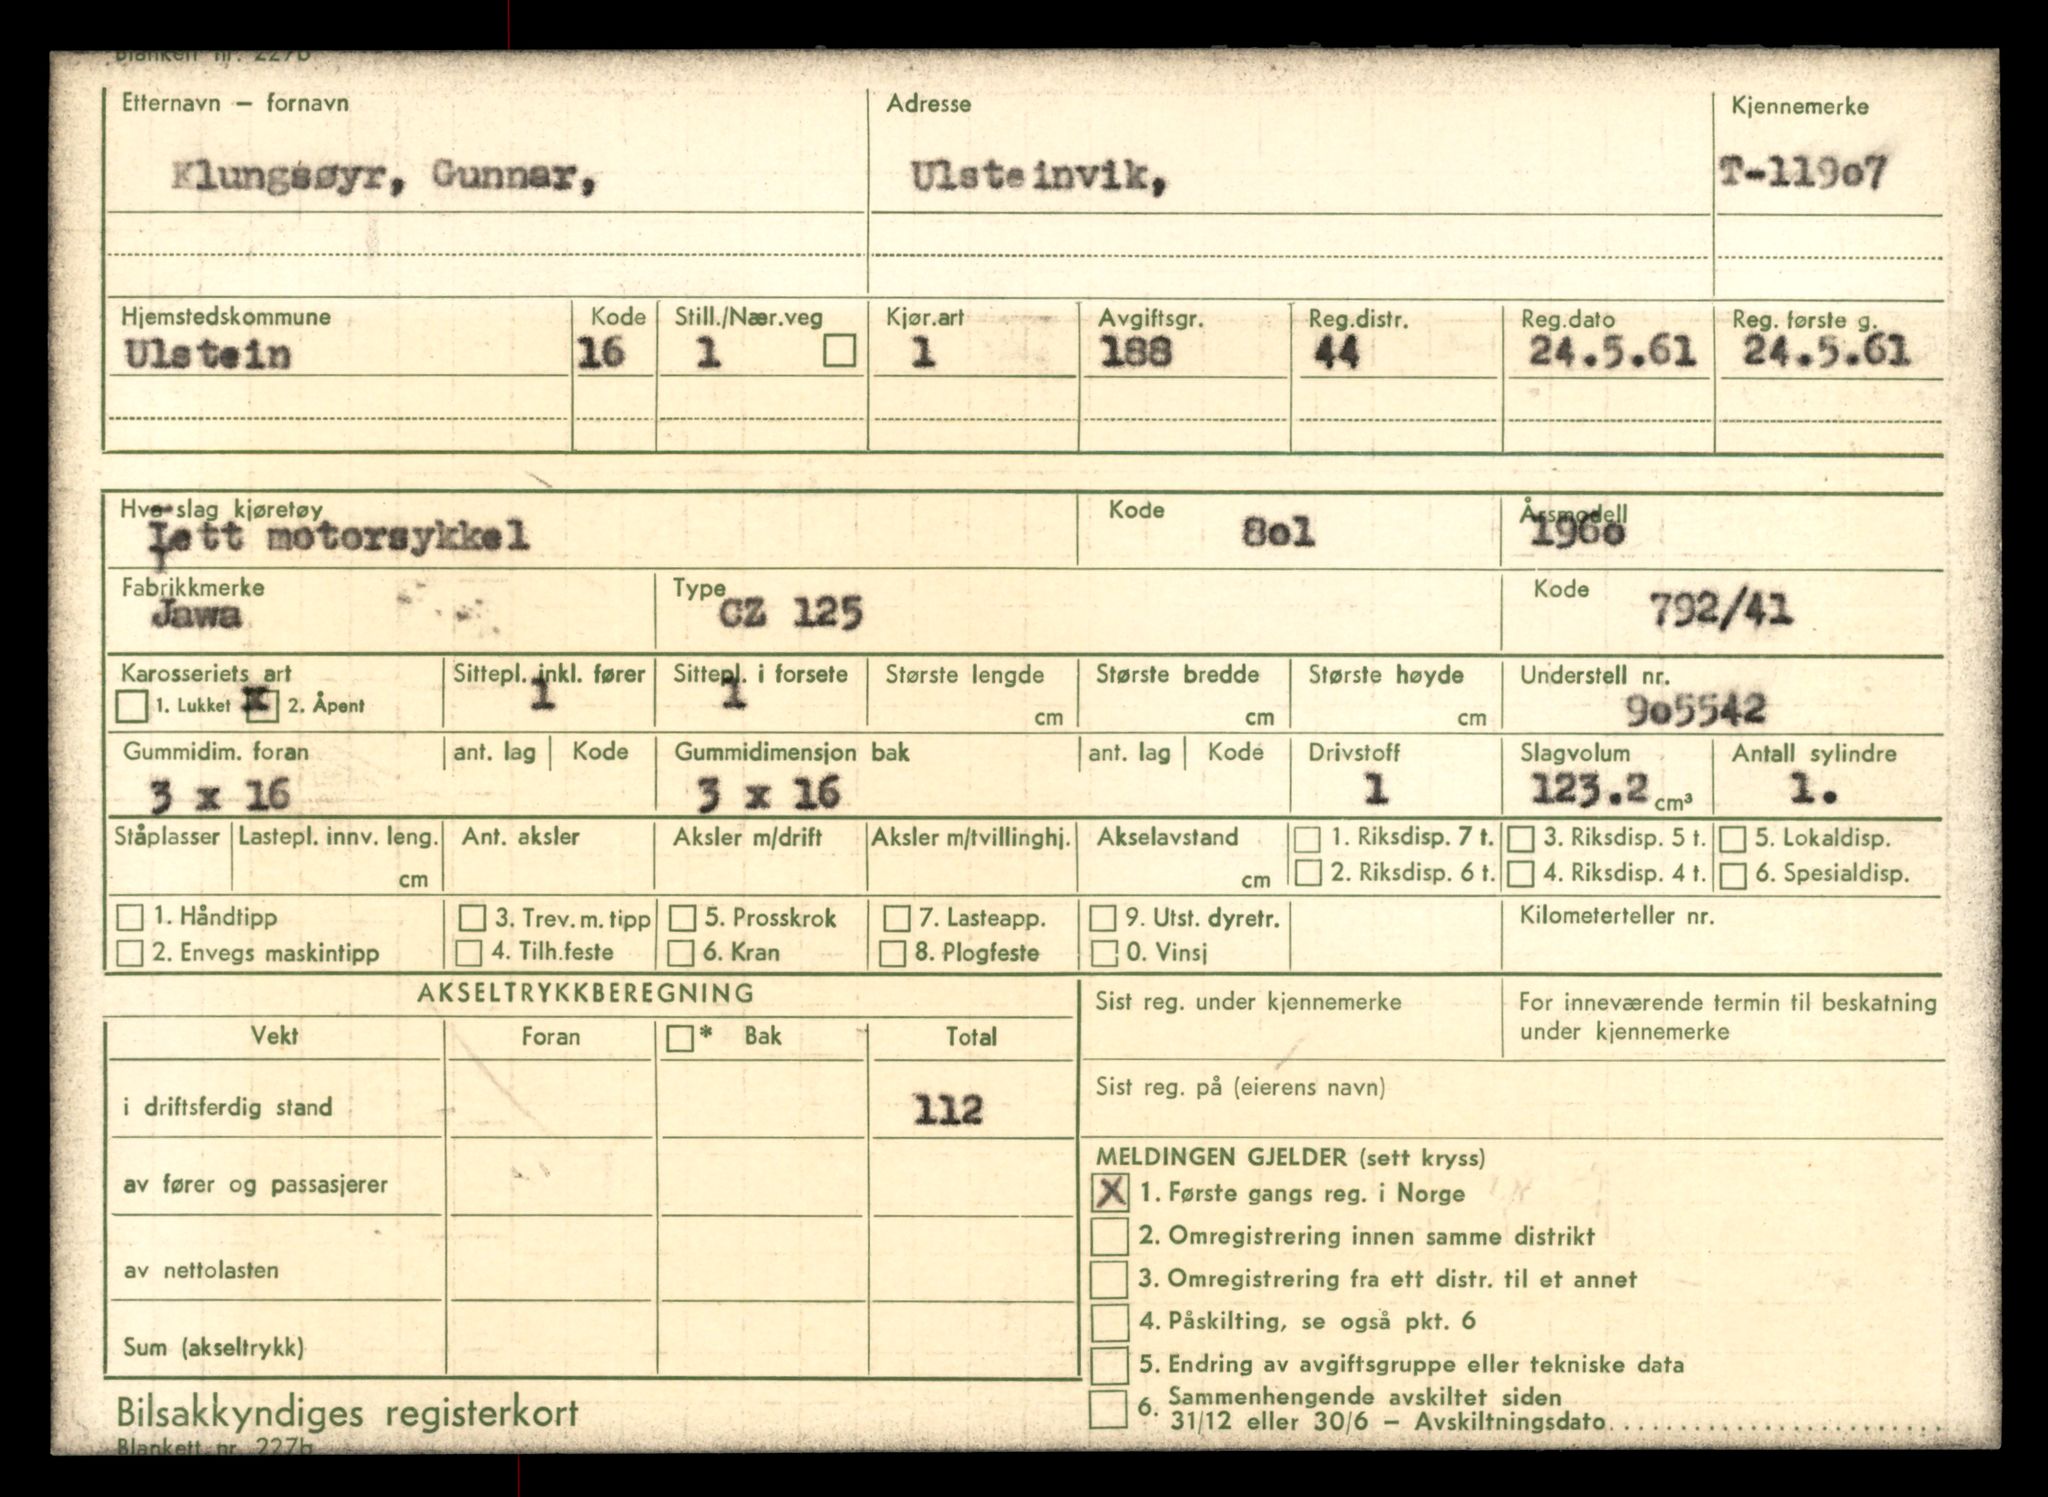 Blankett nr. 227b
Etternavn – fornavn Adresse Kjennemerke
Klungsøyr, Gunnar, Ulsteinvik, T-119o7
Hjemstedskommune Kode Still./Nær.veg Kjør.art Avgiftsgr. Reg.distr. Reg.dato Reg. første g.
Ulstein 16 1 1 188 44 24.5.61 24.5.61
Hva slag kjøretøy Kode Årsmodell
Lett motorsykkel 8o1 196o
Fabrikkmerke Type Kode
Jawa CZ 125 792/41
Karosseriets art Sittepl. inkl. fører Sittepl. i forsete Største lengde Største bredde Største høyde Understell nr.
1. Lukket x 2. Åpent 1 1 cm cm cm 9o5542
Gummidim. foran ant. lag Kode Gummidimensjon bak ant. lag Kode Drivstoff Slagvolum Antall sylindre
3 x 16 3 x 16 1 123.2 cm³ 1.
Ståplasser Lastepl. innv. leng. Ant. aksler Aksler m/drift Aksler m/tvillinghj. Akselavstand 1. Riksdisp. 7 t. 3. Riksdisp. 5 t. 5. Lokaldisp.
cm cm 2. Riksdisp. 6 t. 4. Riksdisp. 4 t. 6. Spesialdisp.
1. Håndtipp 3. Trev. m. tipp 5. Prosskrok 7. Lasteapp. 9. Utst. dyretr. Kilometerteller nr.
2. Envegs maskintipp 4. Tilh.feste 6. Kran 8. Plogfeste 0. Vinsj
AKSELTRYKKBEREGNING
Vekt Foran * Bak Total
i driftsferdig stand 112
av fører og passasjerer
av nettolasten
Sum (akseltrykk)
Sist reg. under kjennemerke For inneværende termin til beskatning
under kjennemerke
Sist reg. på (eierens navn)
MELDINGEN GJELDER (sett kryss)
X 1. Første gangs reg. i Norge
2. Omregistrering innen samme distrikt
3. Omregistrering fra ett distr. til et annet
4. Påskilting, se også pkt. 6
5. Endring av avgiftsgruppe eller tekniske data
6. Sammenhengende avskiltet siden
31/12 eller 30/6 – Avskiltningsdato........................
Bilsakkyndiges registerkort
Blankett nr. 227b